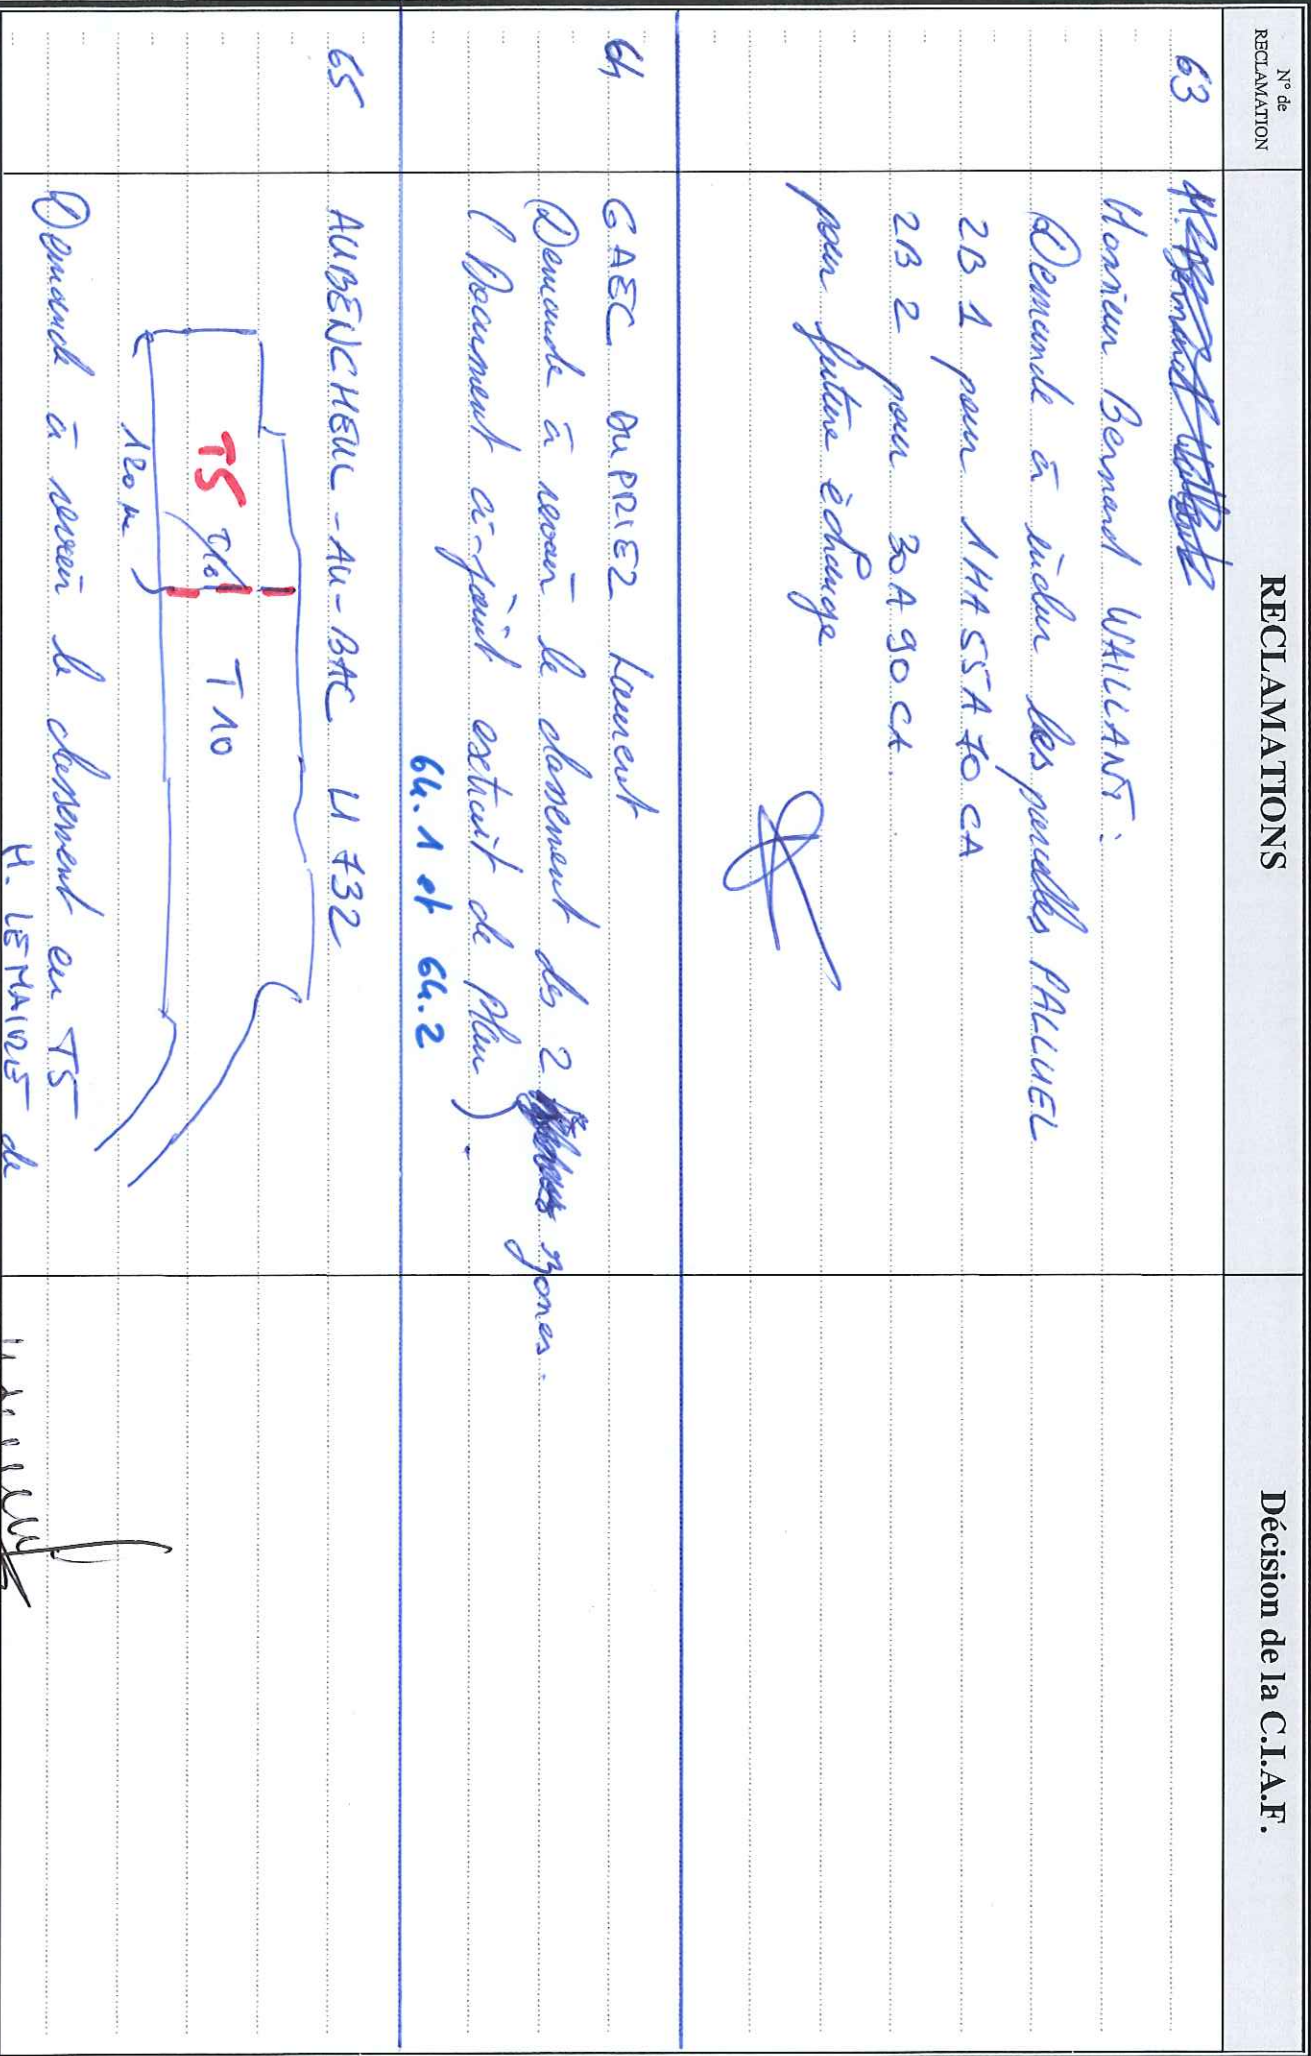 N° de
RECLAMATION
RECLAMATIONS
Décision de la C.I.A.F.
63
Monsieur Bernard WAILLANT :
Demande à inclur les parcelles PALLUEL
2B 1 pour 1HA 55A 70 CA
2B 2 pour 30A 90 CA.
pour futur échange
64
GAEC DUPRIEZ Laurent
Demande à revoir le classement des 2 zones.
(Document ci-joint extrait de Plan).
64.1 et 64.2
65
AUBENCHEUL-AU-BAC U 732
T5 T10
T10
120 m
Demande à revoir le classement en T5
M. LEMAIRE de